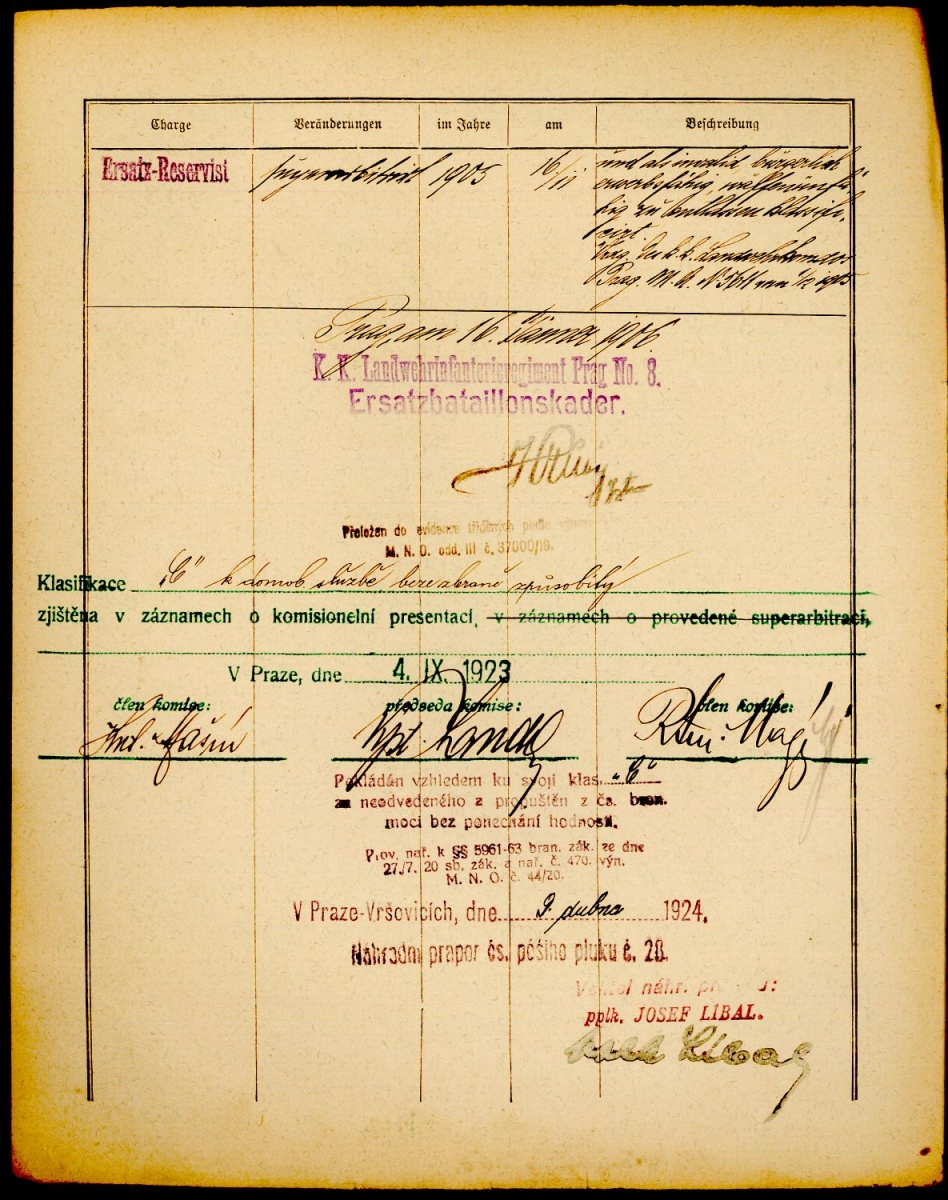 Charge Veränderungen im Jahre am Beschreibung
Ersatz-Reservist superarbitrirt 1905 16/11 und als invalid, bürgerlich
erwerbsfähig, waffenunfä-
hig zu
Landwehrkomdos
Prag, M.A. N 5611 von 1905
Prag, am 16. Jänner 1906
K. K. Landwehrinfanterieregiment Prag No. 8.
Ersatzbataillonskader.
Přeložen do evidence tříděných podle
M. N. O. odd. III č. 37000/19.
Klasifikace „C“ k domob službě beze zbraně způsobilý
zjištěna v záznamech o komisionelní presentaci, v záznamech o provedené superarbitraci,
V Praze, dne 4. IX. 1923
člen komise: předseda komise: člen komise:
Pokládán vzhledem ku svoji klas. „C“
za neodvedeného a propuštěn z čs. bran.
moci bez ponechání hodnosti.
Prov. nař. k §§ 5961-63 bran. zák. ze dne
27./7. 20 sb. zák. a nař. č. 470. výn.
M. N. O. č. 44/20.
V Praze-Vršovicích, dne 9. dubna 1924.
Náhradní prapor čs. pěšího pluku č. 28.
Velitel náhr.
pplk. JOSEF LÍBAL.
Líbal